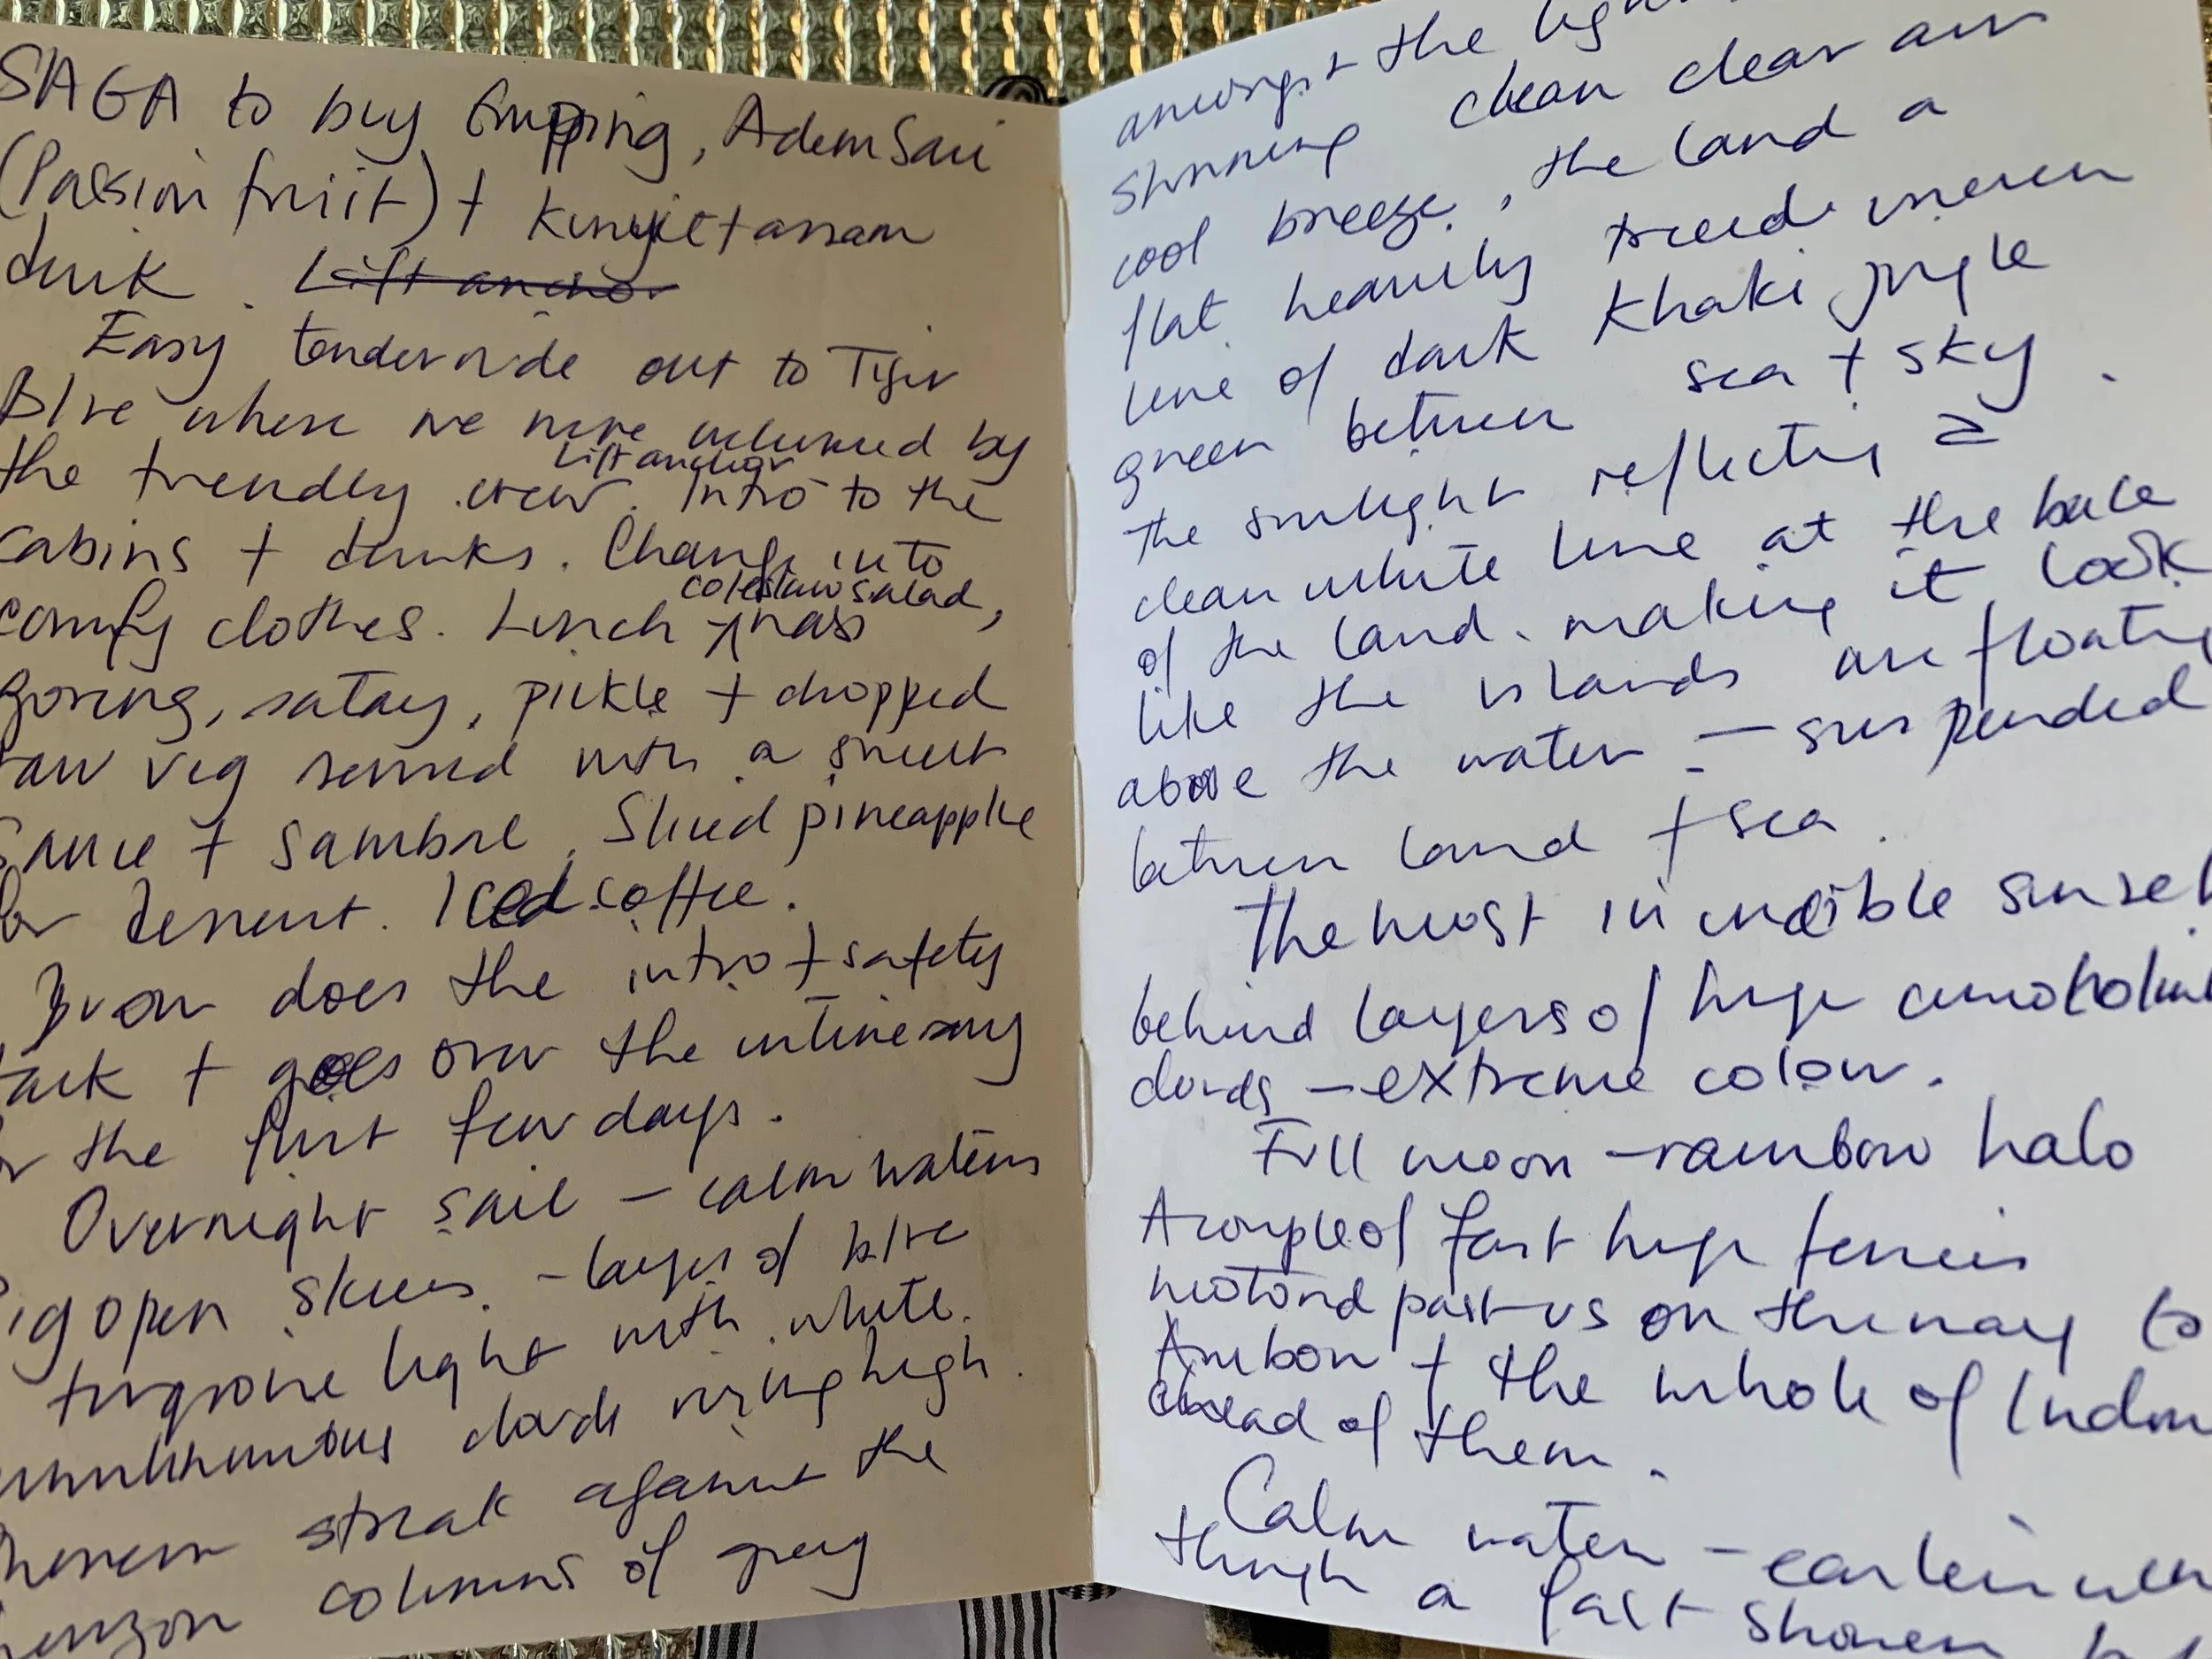 SAGA to buy Emping, Adem Sari
(Passion fruit) + Kunyit + assam
drink. Lift anchor
Easy tender ride out to Tiger
Blue where we were welcomed by
the friendly crew. Lift anchor Intro to the
cabins + drinks. Change into
comfy clothes. Lunch coleslaw salad, nasi
goreng, satay, pickle + chopped
raw veg served with a sweet
sauce + sambal. Sliced pineapple
for dessert. Iced coffee.
does the intro + safety
talk + goes over the intinerary
for the first few days.
Overnight sail – calm waters
Big open skies. – layers of blue
turqoise light with white
clouds rising high.
streak against the
horizon columns of grey
amongst the
shinning clean clear air
cool breeze, the land a
flat heavily treed uneven
line of dark khaki jungle
green between sea + sky.
the sunlight reflecting a
clean white line at the base
of the land. making it look
like the islands are floating
above the water – suspended
between land + sea.
The most incredible sunset
behind layers of huge
clouds – extreme colour.
Full moon – rainbow halo
A couple of fast huge ferries
motored past us on the way to
Ambon + the whole of
ahead of them.
Calm water – earlier
though a fast shower